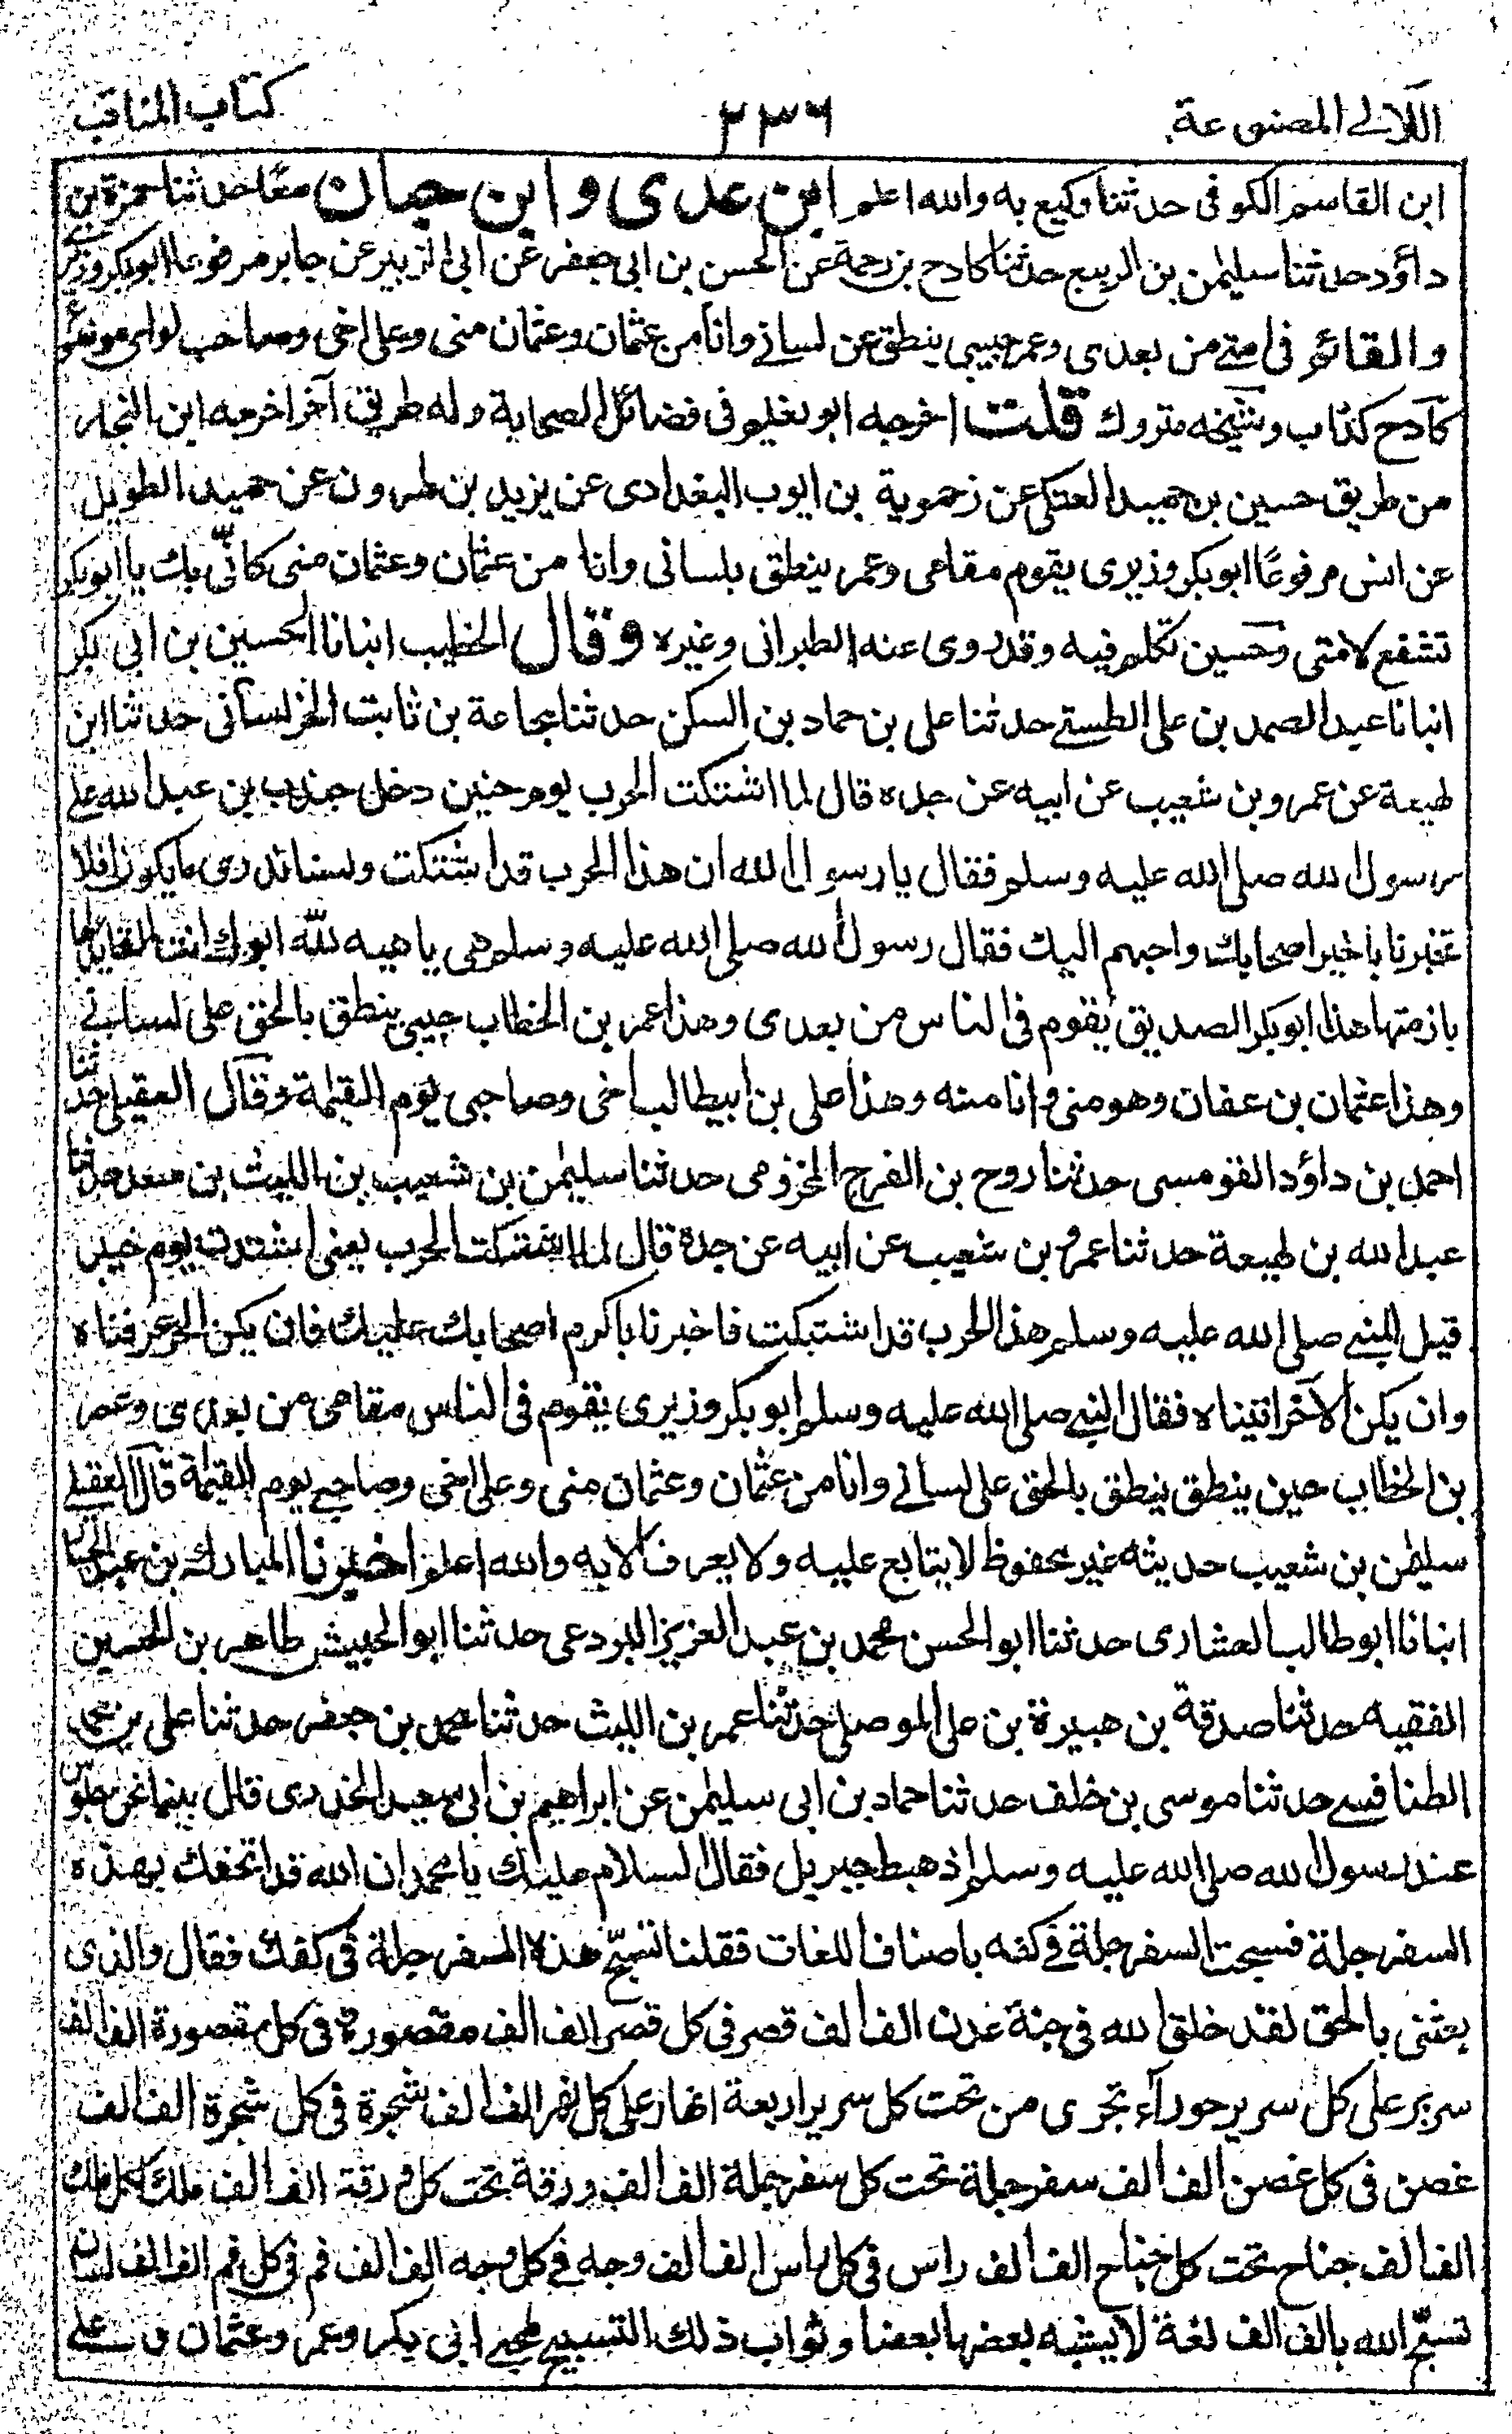 اللآلى المصنوعة
٢٣٦
كتاب المناقب
ابن القاسم الكوفى حدثنا وكيع به والله اعلم ابن عدى وابن حبان معًا حدثنا حمزة بن
داؤد حدثنا سليمن بن الربيع حدثنا كادح بن رحمة عن الحسن بن ابى جعفر عن ابى الزبير عن جابر مرفوعا ابوبكر وزيرى
والقائم فى امتے من بعدى وعمر حبيبى ينطق عن لسانے وانا من عثمان وعثمان منى وعلى اخى وصاحب لوائى موضوع
كادح كذاب وشيخه متروك قلت اخرجه ابو نعيم فى فضائل الصحابة وله طريق آخر اخرجه ابن النجار
من طريق حسين بن حميد العتكى عن زحموية بن ايوب البغدادى عن يزيد بن هرون عن حميد الطويل
عن انس مرفوعًا ابوبكر وزيرى يقوم مقامى وعمر ينطق بلسانى وانا من عثمان وعثمان منى كانّى بك يا ابوبكر
تشفع لامتى وحسين تكلم فيه وقد روى عنه الطبرانى وغيره وقال الخطيب انبانا الحسين بن ابى بكر
انبانا عبد الصمد بن على الطستے حدثنا على بن حماد بن السكن حدثنا مجاعة بن ثابت الخراسانى حدثنا ابن
لهيعة عن عمرو بن شعيب عن ابيه عن جده قال لما اشتبكت الحرب يوم حنين دخل جندب بن عبد الله على
رسول الله صلى الله عليه وسلم فقال يا رسول الله ان هذا الحرب قد اشتبكت ولسنا ندرى ما يكون افلا
تخبرنا باخير اصحابك واحبهم اليك فقال رسول الله صلى الله عليه وسلم هى يا هيه لله ابوك انت القائد لها
بازمتها هذا ابوبكر الصديق يقوم فى الناس من بعدى وهذا عمر بن الخطاب حبيبى ينطق بالحق على لسانے
وهذا عثمان بن عفان وهو منى وانا منه وهذا على بن ابيطالب اخى وصاحبى يوم القيمة وقال العقيلى حدثنا
احمد بن داؤد القومسى حدثنا روح بن الفرج المخزومى حدثنا سليمن بن شعيب بن الليث بن سعد حدثنا
عبد الله بن لهيعة حدثنا عمرو بن شعيب عن ابيه عن جدة قال لما اشتبكت الحرب يعنى اشتدت يوم خيبر
قيل للنبے صلى الله عليه وسلم هذا الحرب قد اشتبكت فاخبرنا باكرم اصحابك عليك فان يكن امر عرفناه
وان يكن الآخر اتيناه فقال النبے صلى الله عليه وسلم ابوبكر وزيرى يقوم فى الناس مقامى من بعدى وعمر
بن الخطاب حين ينطق ينطق بالحق على لسانے وانا من عثمان وعثمان منى وعلى اخى وصاحبے يوم القيمة قال العقيلے
سليمن بن شعيب حديثه غير محفوظ لا يتابع عليه ولا يعرف الا به والله اعلم اخبرنا المبارك بن عبد الجبار
انبانا ابوطالب العشارى حدثنا ابوالحسن محمد بن عبد العزيز البردعى حدثنا ابوالحبيش طاهر بن الحسين
الفقيه حدثنا صدقة بن هبيرة بن على الموصلى حدثنا عمر بن الليث حدثنا محمد بن جعفر حدثنا على بن محمد
الطنافسے حدثنا موسى بن خلف حدثنا حماد بن ابى سليمن عن ابراهيم بن ابى سعيد الخدرى قال بينما نحن جلوس
عند رسول الله صلى الله عليه وسلم اذ هبط جبريل فقال السلام عليك يا محمد ان الله قد اتحفك بهذه
السفرجلة فسبحت السفرجلة فے كفه باصناف اللغات فقلنا تسبّح هذه السفرجلة فى كفك فقال والذى
بعثنى بالحق لقد خلق الله فى جنة عدن الف الف قصر فى كل قصر الف الف مقصورة فى كل مقصورة الف الف
سرير على كل سرير حوراء تجرى من تحت كل سرير اربعة انهار على كل نهر الف الف شجرة فى كل شجرة الف الف
غصن فى كل غصن الف الف سفرجلة تحت كل سفرجلة الف الف ورقة تحت كل ورقة الف الف ملك لكل ملك
الف الف جناح تحت كل جناح الف الف راس فى كل راس الف الف وجه فے كل وجه الف الف فم فى كل فم الف الف لسان
تسبّح الله بالف الف لغة لا يشبه بعضها بعضا وثواب ذلك التسبيح لمحبے ابى بكر وعمر وعثمان وعلے